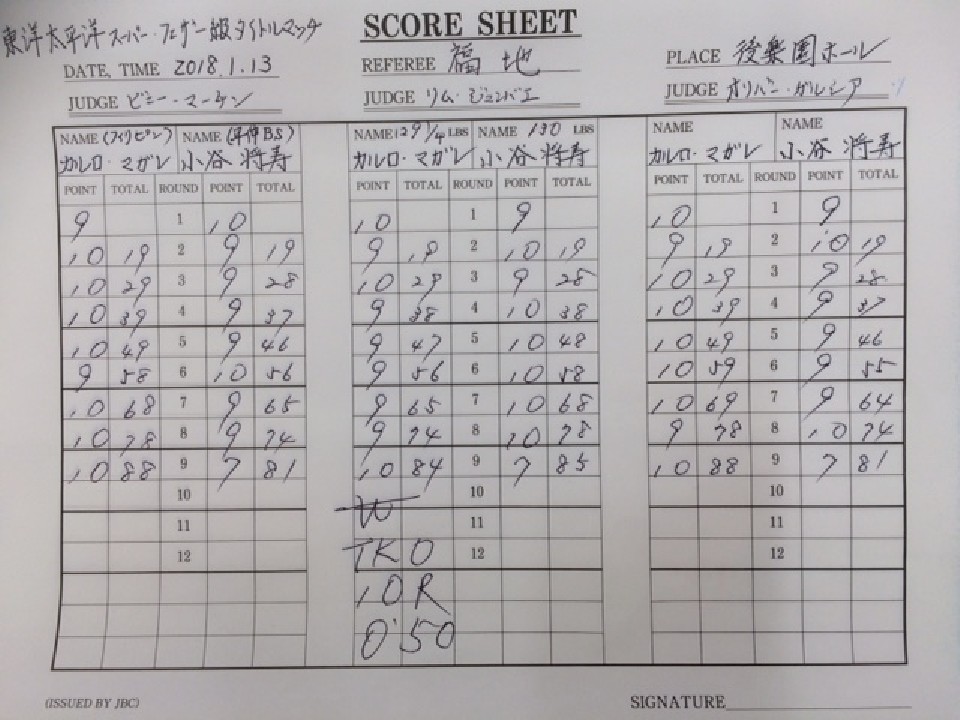 東洋太平洋スーパー・フェザー級タイトルマッチ
SCORE SHEET
DATE, TIME 2018.1.13 REFEREE 福地 PLACE 後楽園ホール
JUDGE ピニー・マーチン JUDGE リム・ジュンバエ JUDGE オリバー・ガルシア
NAME (フィリピン) NAME (平仲BS) NAME 129 1/4 LBS NAME 130 LBS NAME NAME
カルロ・マガレ 小谷 将寿 カルロ・マガレ 小谷 将寿 カルロ・マガレ 小谷 将寿
POINT TOTAL ROUND POINT TOTAL POINT TOTAL ROUND POINT TOTAL POINT TOTAL ROUND POINT TOTAL
9 1 10 10 1 9 10 1 9
10 19 2 9 19 9 19 2 10 19 9 19 2 10 19
10 29 3 9 28 10 29 3 9 28 10 29 3 9 28
10 39 4 9 37 9 38 4 10 38 10 39 4 9 37
10 49 5 9 46 9 47 5 10 48 10 49 5 9 46
9 58 6 10 56 9 56 6 10 58 10 59 6 9 55
10 68 7 9 65 9 65 7 10 68 10 69 7 9 64
10 78 8 9 74 9 74 8 10 78 9 78 8 10 74
10 88 9 7 81 10 84 9 7 85 10 88 9 7 81
10 W 10 10
11 11 11
12 TKO 12 12
10R
0'50
(ISSUED BY JBC) SIGNATURE